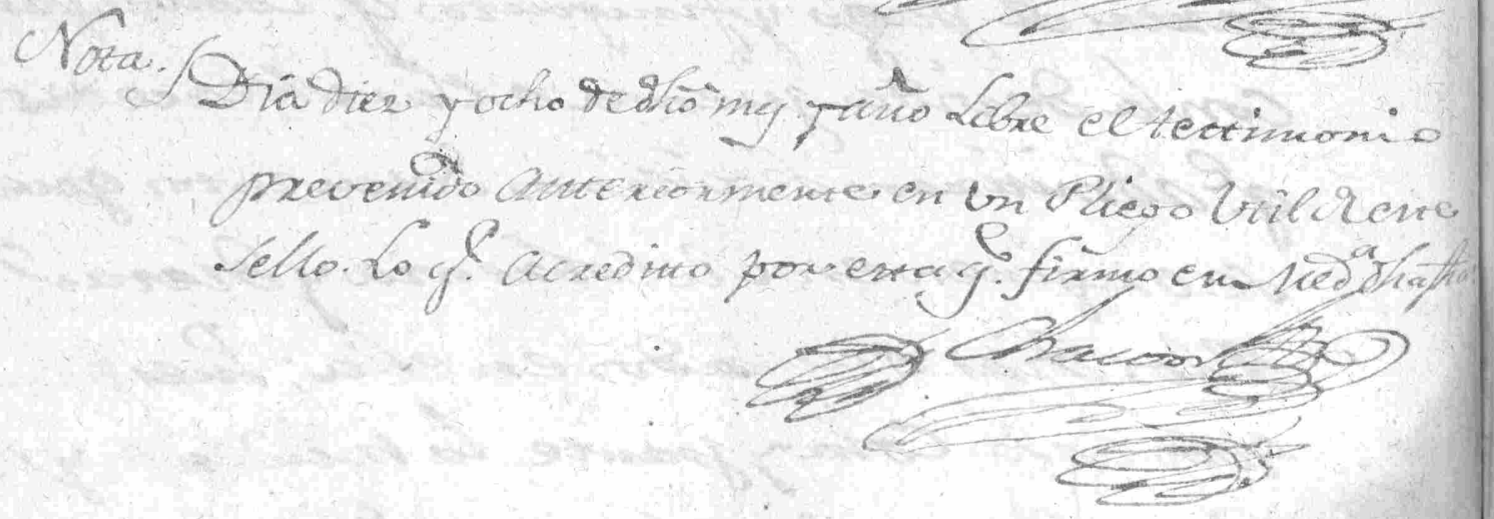 Nota.
Dia diez y ocho de dho mes y año Libre el testimonio
prevenido anteriormente en un Pliego Util de este
Sello. Lo q.e acredito por esta q.e firmo en Med.a dha fha
Chacon